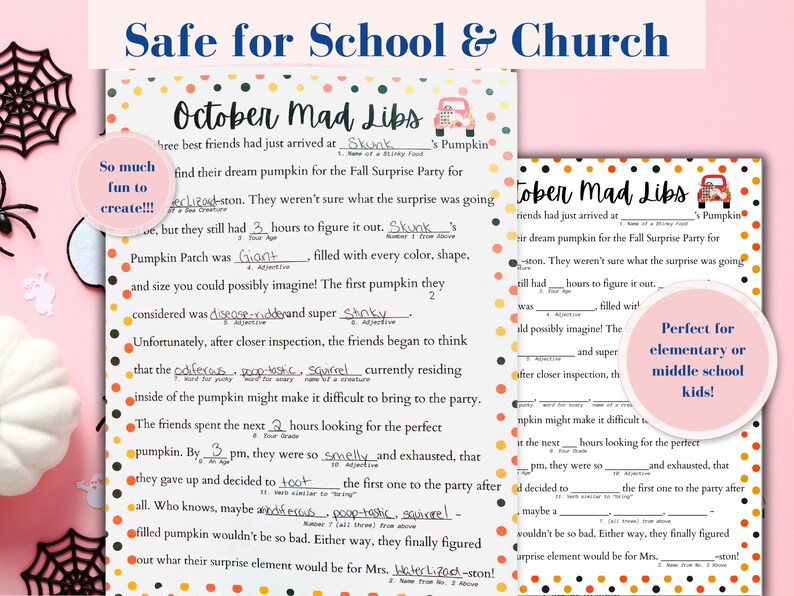 Safe for School & Church
So much
fun to
create!!!
October Mad Libs
hree best friends had just arrived at Skunk 's Pumpkin
1. Name of a Stinky Food
find their dream pumpkin for the Fall Surprise Party for
terLizard-ston. They weren't sure what the surprise was going
of a Sea Creature
be, but they still had 3 hours to figure it out. Skunk 's
3. Your Age Number 1 from Above
Pumpkin Patch was Giant, filled with every color, shape,
4. Adjective
and size you could possibly imagine! The first pumpkin they
2
considered was disease-ridden and super stinky.
5. Adjective 6. Adjective
Unfortunately, after closer inspection, the friends began to think
that the odiferous, poop-tastic, squirrel currently residing
7. Word for yucky word for scary name of a creature
inside of the pumpkin might make it difficult to bring to the party.
The friends spent the next 2 hours looking for the perfect
8. Your Grade
pumpkin. By 3 pm, they were so smelly and exhausted, that
9. An Age 10. Adjective
they gave up and decided to toot the first one to the party after
11. Verb similar to "bring"
all. Who knows, maybe a odiferous, poop-tastic, squirrel -
Number 7 (all three) from above
filled pumpkin wouldn't be so bad. Either way, they finally figured
out what their surprise element would be for Mrs. WaterLizard-ston!
2. Name from No. 2 Above
ctober Mad Libs
iends had just arrived at 's Pumpkin
1. Name of a Stinky Food
eir dream pumpkin for the Fall Surprise Party for
-ston. They weren't sure what the surprise was going
ature
still had hours to figure it out.
3. Your Age
was , filled with
4. Adjective
ould possibly imagine! The
and super
5. Adjective
after closer inspection, the
word for scary name of a
mpkin might make it difficult to
nt the next hours looking for the perfect
8. Your Grade
pm, they were so and exhausted, that
10. Adjective
d decided to the first one to the party after
11. Verb similar to "bring"
s, maybe a , , -
7. (all three) from above
wouldn't be so bad. Either way, they finally figured
urprise element would be for Mrs. -ston!
2. Name from No. 2 Above
Perfect for
elementary or
middle school
kids!